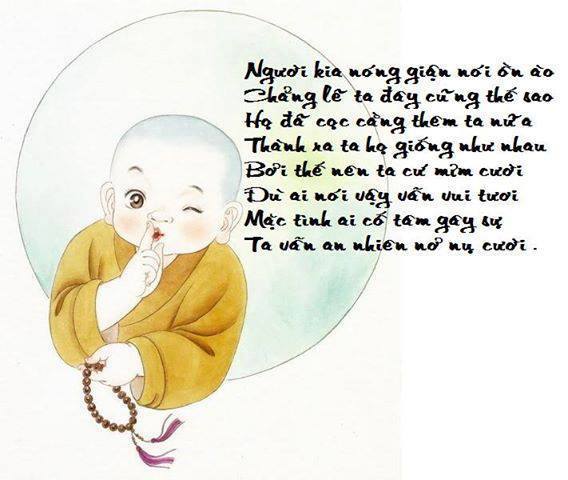 Người kia nóng giận nói ồn ào
Chẳng lẽ ta đây cũng thế sao
Họ đã cọc cằng thêm ta nữa
Thành ra ta họ giống như nhau
Bởi thế nên ta cứ mỉm cười
Dù ai nói vậy vẫn vui tươi
Mặc tình ai cố tâm gây sự
Ta vẫn an nhiên nở nụ cười .